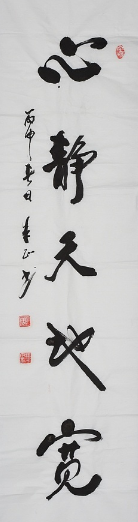 心静天地宽
丙申春日 李正书